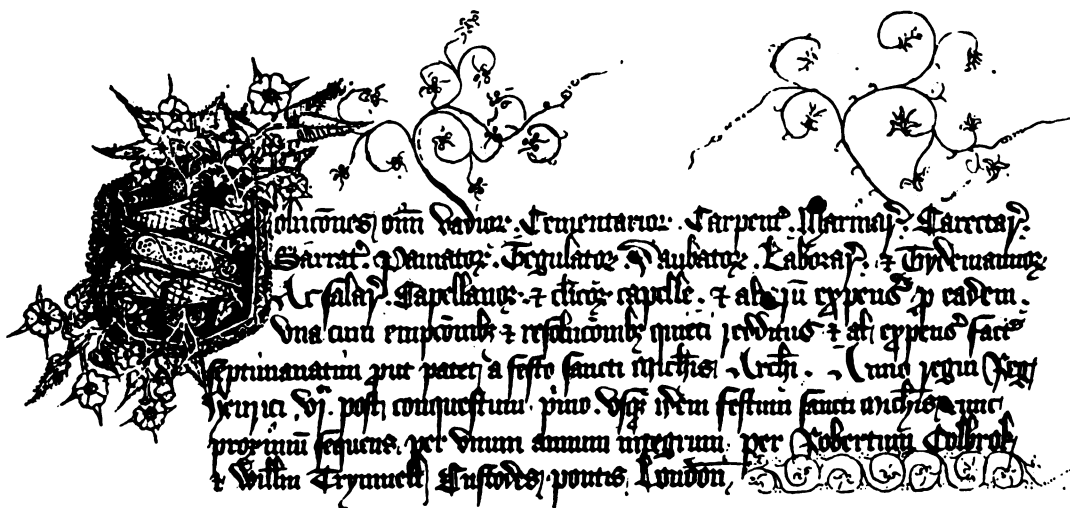 Soluciones om̄ vadior. Cementarior. Carpent. Marmar. Carectar.
Sarrat. Paviator. Tegulator. Daubator. Laborar. & Tydemannor
Ac salar. Capellanor. & clicor capelle. & alior expens p eadem.
Una cum empcōnibȝ & resolucōnibȝ quieti redditus & al expens fact
septimanatim put patet a festo sancti Michis Archi. Anno regni Reg
henrici vj. post conquestum pimo. usqȝ idem festum sancti Michis tunc
proximū sequens. per unum annum integrum. per Robertum Colbrok
& Willm Trymnell Custodes pontis London